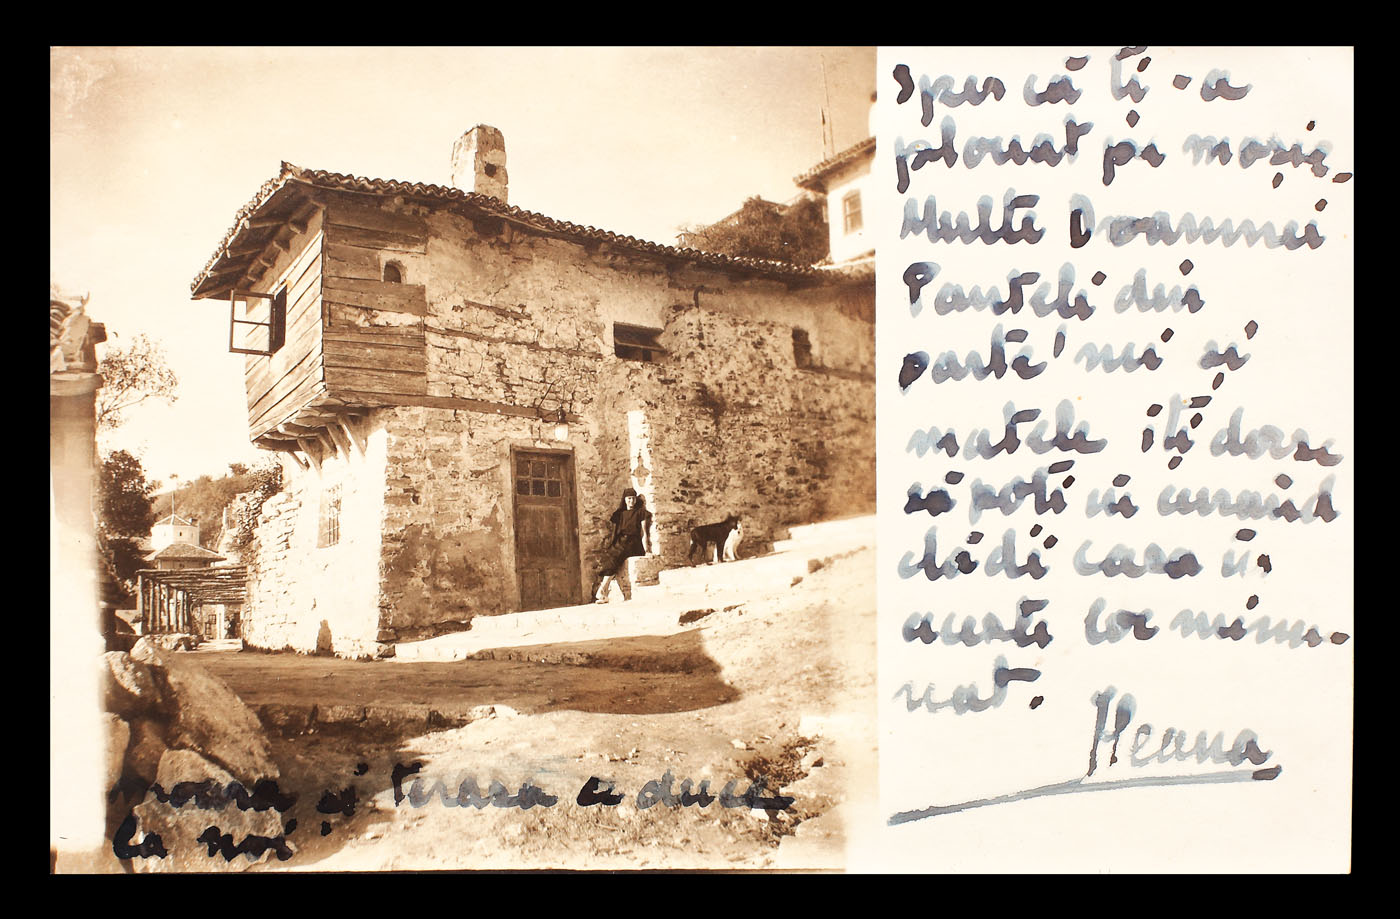 Sper că ți-a
plouat pe moșie.
Multe Doamnei
Panteli din
parte'mi și
matele îți doresc
să poti în curând
clădi casa în
acest loc minu-
nat.
Ileana
moara și terasa ce duce
la noi